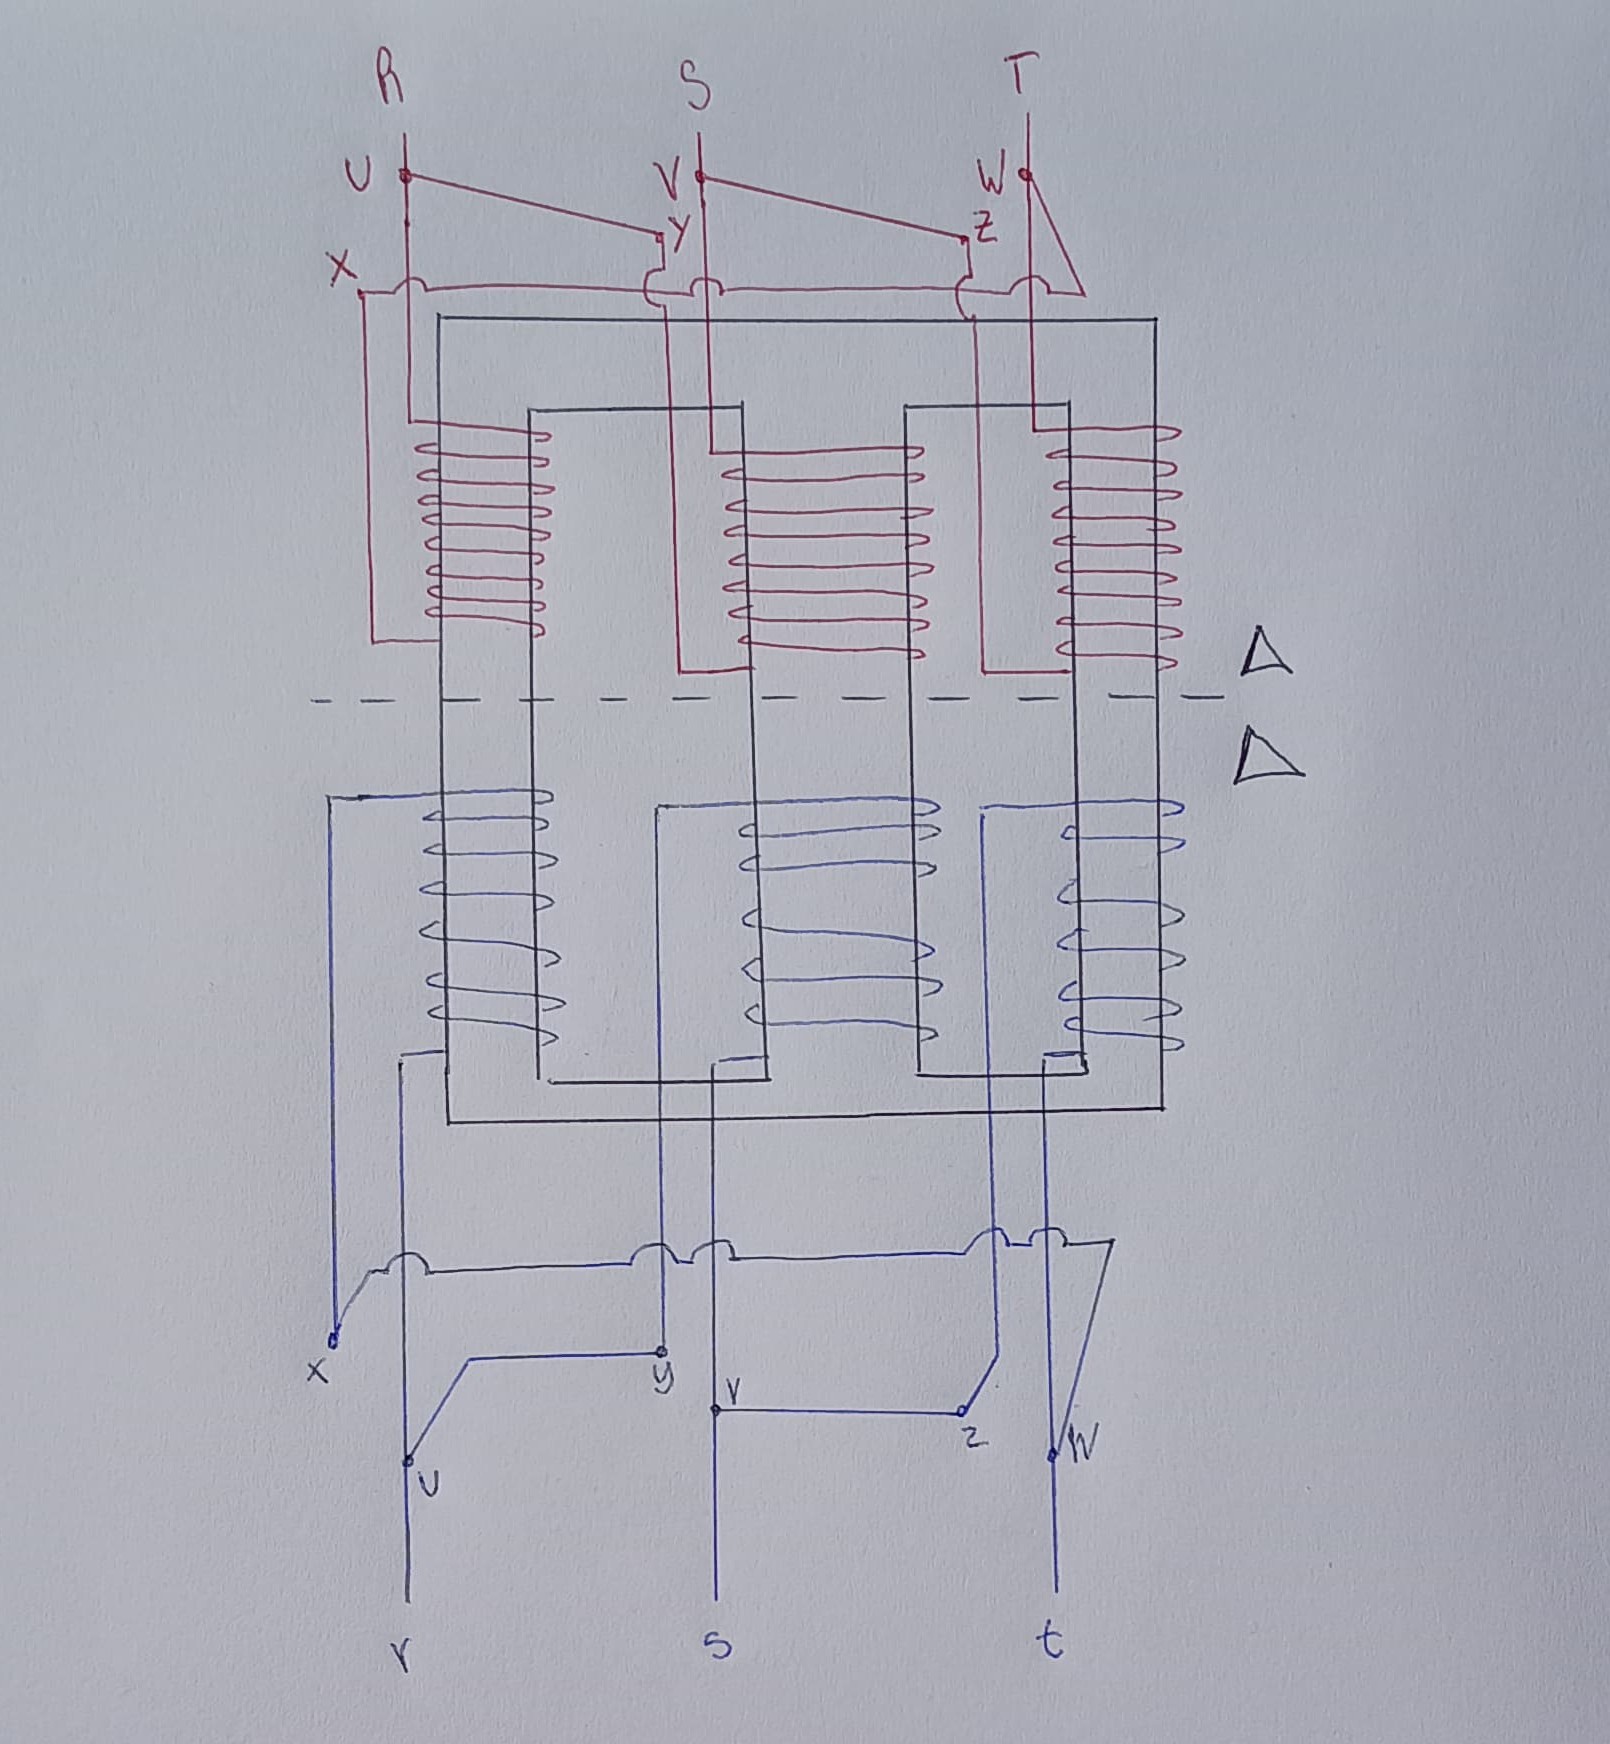 R S T
U V W
Y Z
X
x y
V
z W
U
r s t